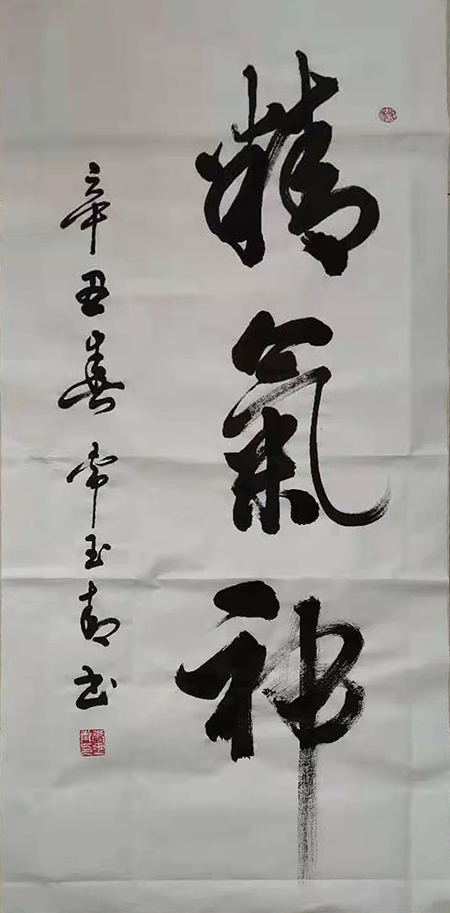 精氣神
辛丑春常玉书